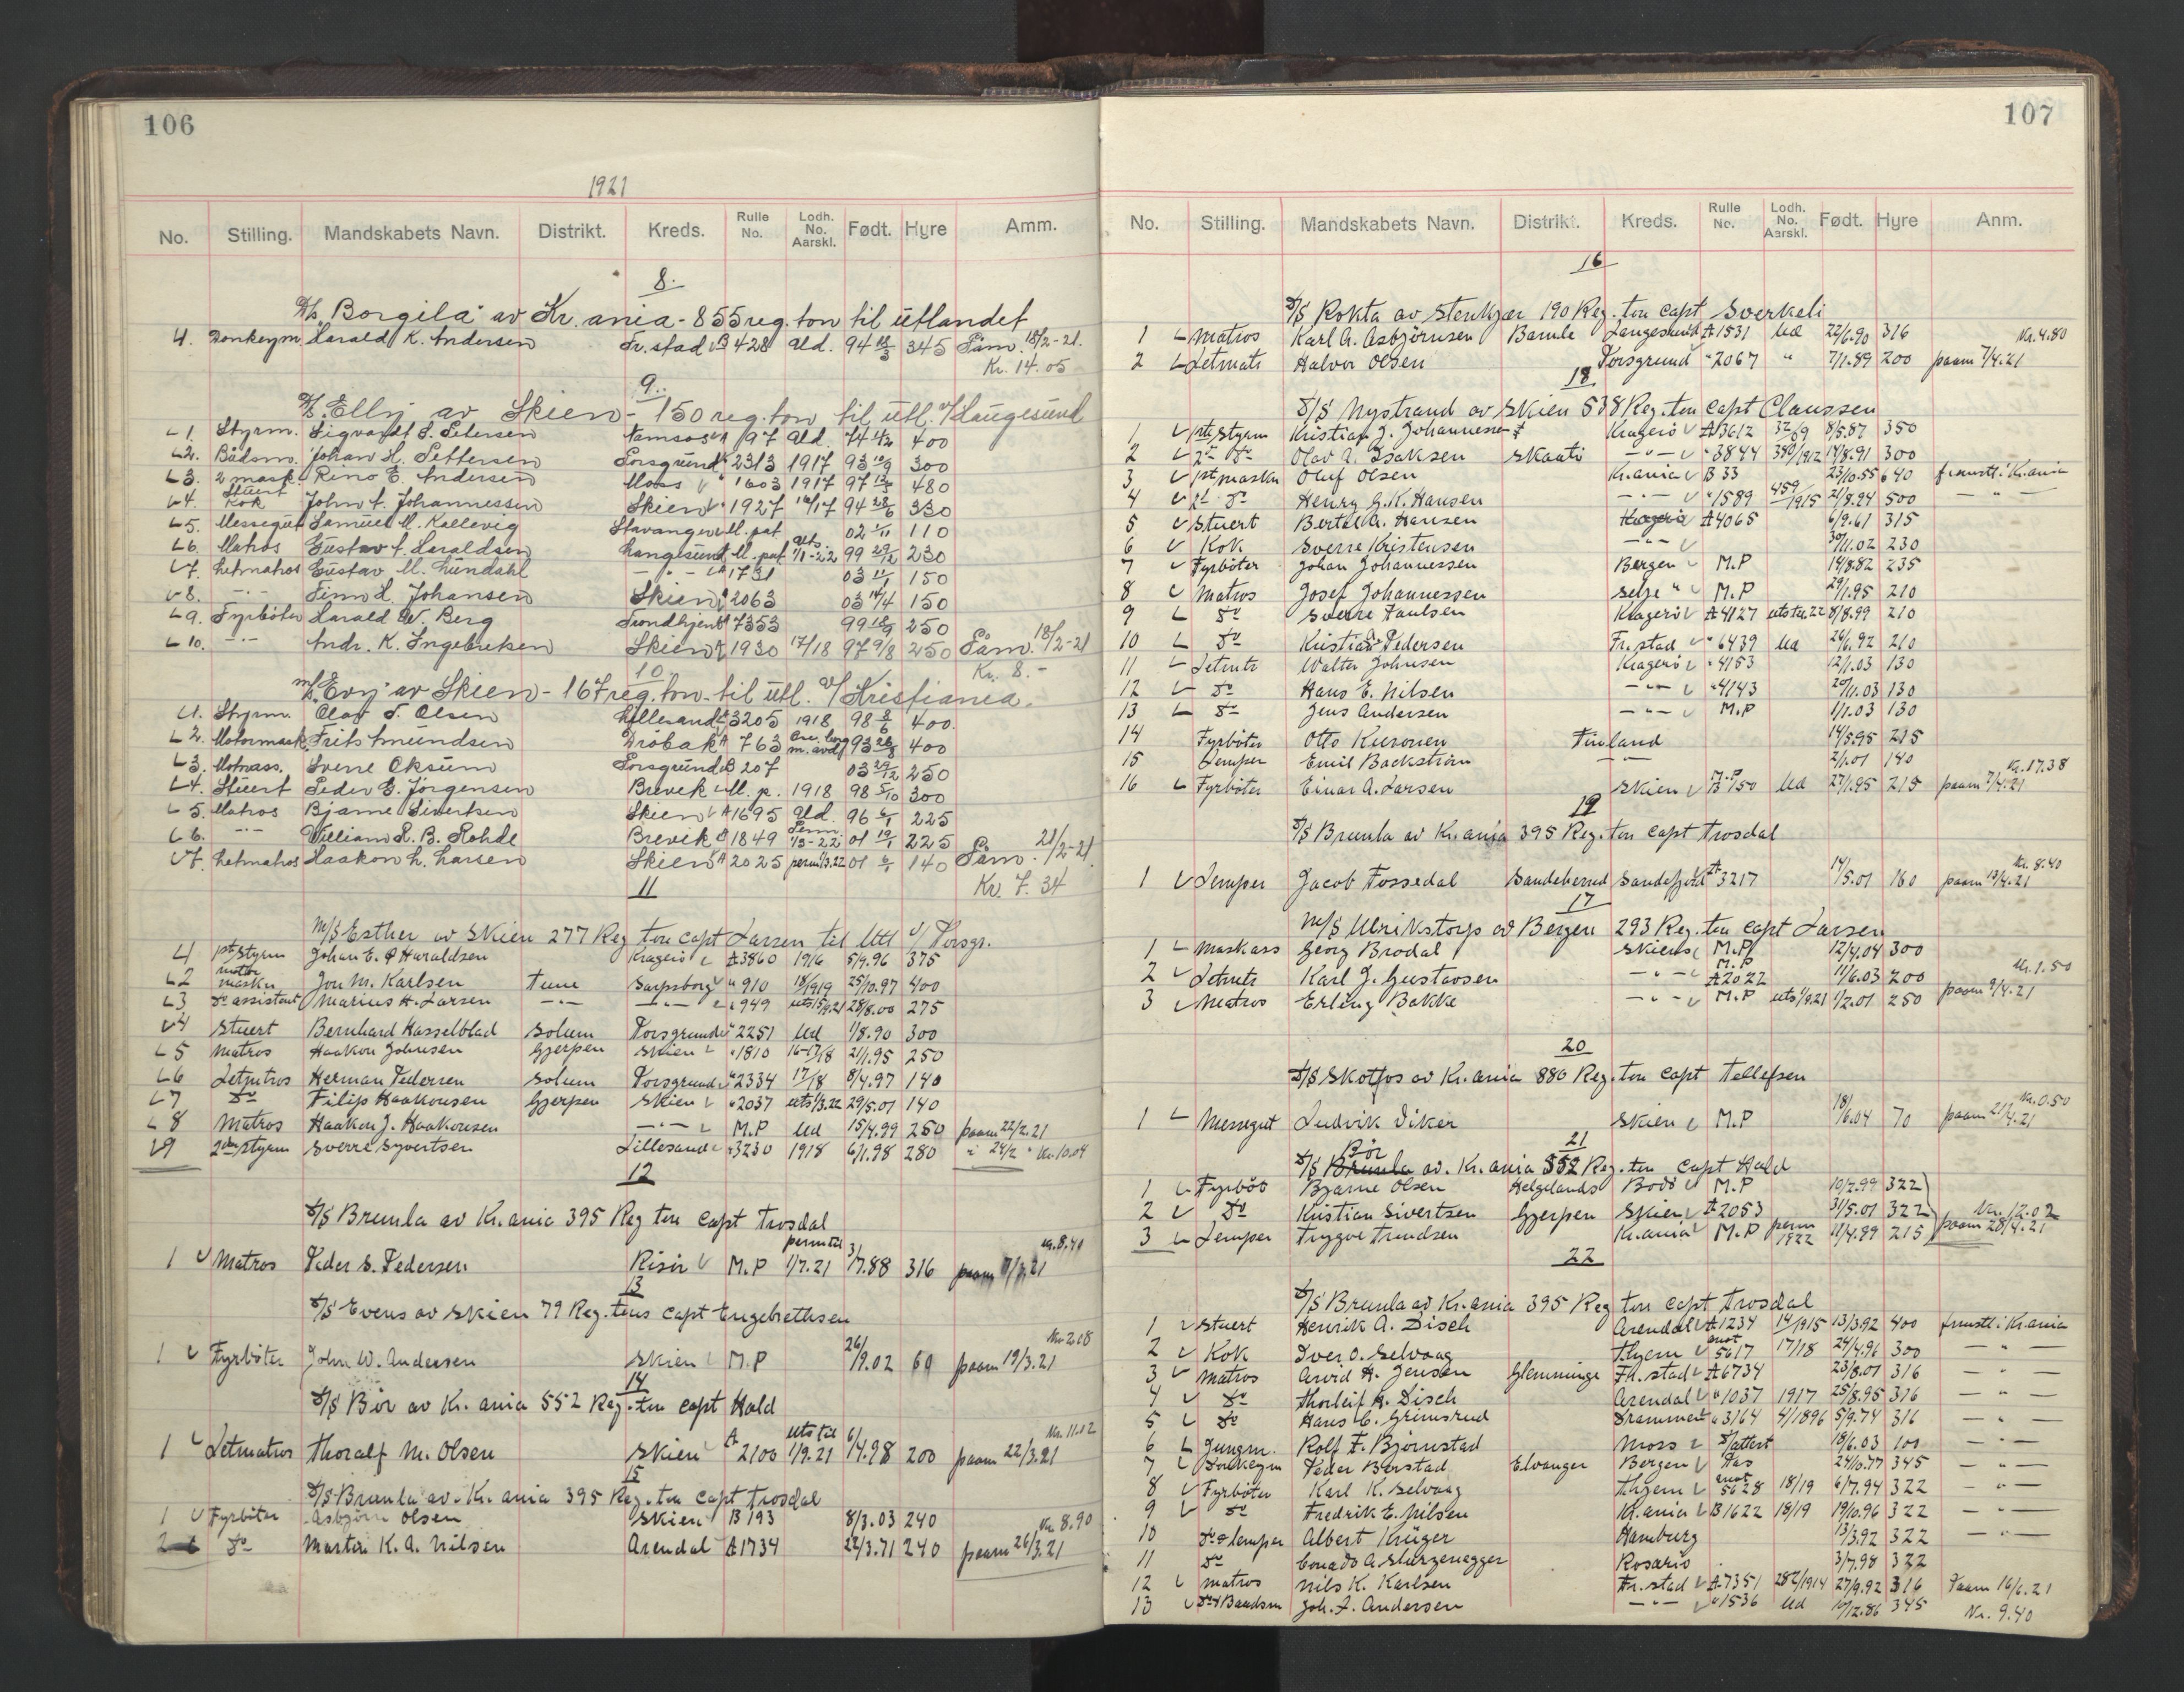 106
1921
No. Stilling. Mandskabets Navn. Distrikt. Kreds. Rulle No. Lodh. No. Aarskl. Født. Hyre Amm.
8.
D/S "Borgila" av Kr.ania - 855 reg. ton til utlandet
4. Donkeym. Harald K. Andersen Fr.stad B 428 Uld. 94 345 Påm. 18/2-21.
Kr. 14.05
9.
"Elly" av Skien - 150 reg. ton til utl. v/ Langesund
1. Styrm. Sigvardt S. Petersen Namsos 197 Uld. 400
2. Bådsm. Johan H. Pettersen Porsgrund 2313 1917 93 300
3. 2 mask. Rino E. Andersen Moss 1603 1917 97 480
4. Stuert Kok John A. Johannessen Skien 1927 16/17 94 28/6 330
5. Messegut Samuel M. Kallevig Stavanger M. pat. 02 110
6. Matros Gustav A. Haraldsen Langesund M. pat. uts. 1/1-22 99 29/12 230
7. Letmatros Gustav M. Lundahl -"- A 1731 03 150
8. -"- Finn H. Johansen Skien 2063 03 14/4 150
9. Fyrbøter Harald W. Berg Trondhjem 7353 99 250
10. -"- Andr. K. Ingebretsen Skien 1930 17/18 97 9/8 250 Påm. 18/2-21
Kr. 8.-
10
M/S "Evy" av Skien - 167 reg. ton - til utl. v/ Kristiania.
1. Styrm. Olav T. Olsen Lillesand 3205 1918 98 400.
2. Motormask. Frits Amundsen Drøbak A 763 93 400
3. Motorass. Sverre Oksum Porsgrund B 207 03 29/12 250
4. Stuert Peder G. Jørgensen Brevik M. p. 1918 98 5/10 300
5. Matros Bjarne Sivertsen Skien A 1695 Uld. 96 225
6. -"- William R. B. Rohde Brevik 1849 1/3-22 01 19/1 225
7. Letmatros Haakon L. Larsen Skien A 2025 perm 1/3.22 01 140 Påm. 21/2-21.
Kr. 7.34
11
M/S Esther av Skien 277 Reg ton capt Larsen til Utl v/ Porsgr.
1 1st Styrm Johan E. P Haraldsen Kragerö A 3860 1916 5/9.96 375
2 motor maskn Jon M. Karlsen Tune Sarpsborg " 910 18/1919 25/10.97 400
3 do assistent Marius A. Larsen -"- -"- " 949 uts 15/9.21 28/8.00 275
4 Stuert Bernhard Hasselblad Solum Porsgrund " 2251 Ud 1/8.90 300
5 Matros Haakon Johnsen Gjerpen Skien " 1810 16-17/18 21/1.95 250
6 Letmtros Herman Pedersen Solum Porsgrund " 2334 17/18 8/4.97 140
7 do Filip Haakonsen Gjerpen Skien " 2037 uts 1/3.22 29/5.01 140
8 Matros Haakon J. Haakonsen -"- M.P Ud 15/4.99 250 paam 22/2.21
9 2den styrm Sverre Syvertsen Lillesand " 3230 1918 6/1.98 280 " 24/2 " Kr. 10.04
12
D/S Brunla av Kr.ania 395 Reg ton capt Trosdal
1 Matros Peder S. Pedersen Risör M.P perm til 1/7.21 3/7.88 316 paam 7/3.21 Kr. 8.40
13
D/S Evens av Skien 79 Reg. tons capt Engebrethsen
1 Fyrböter John W. Andersen Skien M.P 26/9.02 60 paam 19/3.21 Kr 2.08
14
D/S Bör av Kr.ania 552 Reg. ton capt Hald
1 Letmatros Thoralf M. Olsen Skien A 2100 uts til 1/9.21 6/4.98 200 paam 22/3.21 Kr. 11.12
15
D/S Brunla av. Kr.ania 395 Reg. ton capt Trosdal
1 Fyrböter Asbjörn Olsen Skien B 193 8/3.03 240 Kr 8.90
2 do Martin K. A. Nilsen Arendal A 1734 22/3.71 240 paam 26/3.21
107
No. Stilling. Mandskabets Navn. Distrikt. Kreds. Rulle No. Lodh. No. Aarskl. Født. Hyre Anm.
16
D/S Rokta av Stenkjær 190 Reg. ton capt Sverkeli
1 Matros Karl A. Asbjörnsen Bamle Langesund A 1531 Ud 22/6.90 316 Kr. 4.80
2 Letmatr Halvor Olsen Porsgrund " 2067 " 7/1.89 200 paam 7/4.21
18
D/S Nystrand av Skien 538 Reg. ton capt Claussen
1 1ste Styrm Kristian J. Johannesen Kragerö A 3612 32/09 8/5.87 350
2 2n do Olav A. Isaksen Skaatö -"- " 3844 1912 14/8.91 300
3 1st maskn Oluf Olsen Kr.ania B 33 23/10.55 640 frmstl. i Kr.ania
4 2. do Henry G. K. Hansen -"- " 1589 459/1915 21/8.94 500 -"-
5 Stuert Bertel A. Hansen Kragerö A 4065 6/9.61 315
6 Kok Sverre Kristensen -"- 30/11.02 230
7 Fyrböter Johan Johannessen Bergen M.P 14/8.82 235
8 Matros Josef Johannessen Selje " M.P 29/1.95 210
9 do Sverre Paulsen Kragerö A 4127 8/8.99 210
10 do Kristian Pedersen Fr.stad " 6439 Ud 26/6.92 210
11 Letmtr Walter Johnsen Kragerö " 4153 2/1.03 130
12 do Hans E. Nilsen -"- " 4143 20/11.03 130
13 do Jens Andersen -"- M.P 1/1.03 130
14 Fyrböter Otto Kuronen Finland 14/5.95 215
15 Lemper Emil Backström -"- 2/1.01 140
16 Fyrböter Einar A. Larsen Skien M.P B 150 Ud 27/1.95 215 paam 7/4.21 Kr. 17.38
19
D/S Brunla av Kr.ania 395 Reg. ton capt Trosdal
1 Lemper Jacob Fossedal Sandeherred Sandefjord A 3217 14/5.01 160 paam 13/4.21 Kr. 8.40
17
M/S Ulrikstorp av Bergen 293 Reg. ton capt Larsen
1 Maskass Georg Brodal Skiens M.P 12/4.04 300
2 Letmtr Karl J. Gustavsen -"- M.P A 2022 11/6.03 200 Kr. 1.50
3 Matros Erling Bakke -"- M.P uts 1/9.21 1/2.01 250 paam 9/4.21
20
D/S Skotfos av Kr.ania 880 Reg. ton capt Tellefsen
1 Messegut Ludvik Viker Skien M.P 18/6.04 70 paam 21/4.21 Kr. 0.50
21
D/S Brunla Bör av. Kr.ania 552 Reg. ton capt Hald
1 Fyrböt Bjarne Olsen Helgelands Bodö M.P 10/2.99 322
2 do Kristian Sivertsen Gjerpen Skien A 2053 31/5.01 322 Kr. 12.02
3 Lemper Trygve Trundsen Kr.ania M.P perm 1922 11/4.99 215 paam 28/4.21
22
D/S Brunla av Kr.ania 395 Reg ton capt Trosdal
1 Stuert Henrik A. Disch Arendal A 1234 14/1915 13/3.92 400 frmstl. i Kr.ania
2 Kok Iver O. Selvaag Thjem 5617 17/18 24/4.96 300 -"-
3 Matros Arvid H. Jensen Glemminge Fr.stad A 6734 23/8.01 316 -"-
4 do Thorleif A. Disch Arendal " 1037 1917 25/8.95 316 -"-
5 do Hans C. Grimsrud Drammen " 3164 4/1896 5/9.74 316 -"-
6 Jungm. Rolf F. Björnstad Moss D/attest 18/6.03 100 -"-
7 Donkeym Peder Berstad Elvanger Bergen Pas 24/10.77 345 -"-
8 Fyrböter Karl K. Selvaag Thjem 5628 18/19 6/7.94 322 -"-
9 do Fredrik E. Nilsen Kr.ania B 1622 18/19 19/10.96 322 -"-
10 do & lemper Albert Krüger Hamburg 13/3.92 322 -"-
11 do Conado A. Sturzenegger Rosario 3/7.98 322
12 Matros Nils K. Karlsen Fr.stad A 7351 282/1914 27/9.92 316 Paam 16/6.21
13 do & Baadsm Joh. F. Andersen -"- " 1536 Ud 10/12.86 345 Kr. 9.40